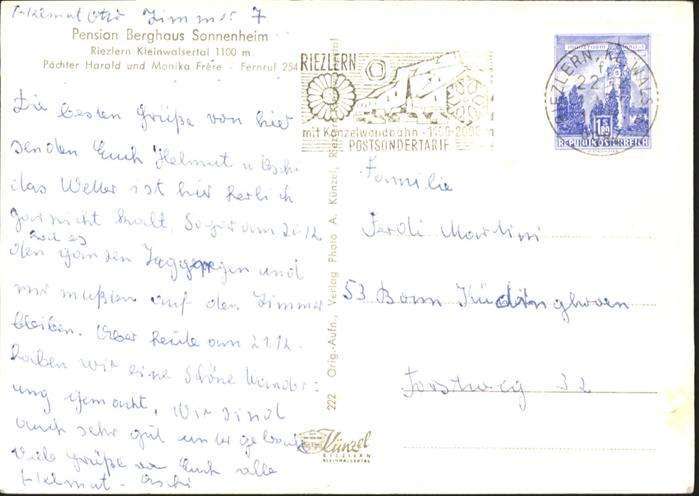 Helmut Zimmer 7
Pension Berghaus Sonnenheim
Riezlern Kleinwalsertal 1100 m
Pächter Harald und Monika Frese - Fernruf 254
Die besten Grüße von hier
senden Euch Helmut u.
das Wetter ist hier herlich
gar nicht kalt. am 20/12
wie es
den ganzen Tag und
mir mußten auf den Zimmer
bleiben. Aber heute am 21/12.
haben wir eine schöne Wander=
ung gemacht, Wir sind
auch sehr gut unter
Viele Grüße an Euch alle
Helmut -
RIEZLERN
mit Kanzelwandbahn - 1100-2000 m
POSTSONDERTARIF
RIEZLERN, KL. WALS
REPUBLIK ÖSTERREICH
Familie
Ferdi Martini
53 Bonn Küdinghoven
Forstweg 32
222 Orig.-Aufn., Verlag Photo A. Künzel, Riezlern
Künzel
RIEZLERN
KLEINWALSERTAL